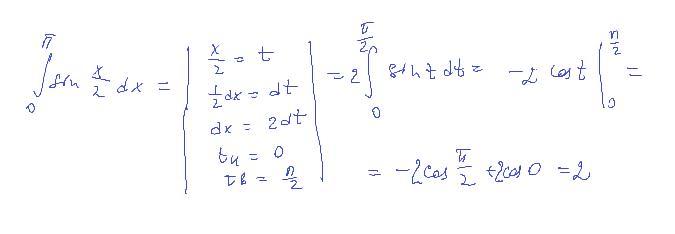 ∫₀^π sin x/2 dx = | x/2 = t
1/2 dx = dt
dx = 2dt
tн = 0
tв = π/2 | = 2 ∫₀^(π/2) sin t dt = -2 cos t |₀^(π/2) =
= -2cos π/2 + 2cos 0 = 2